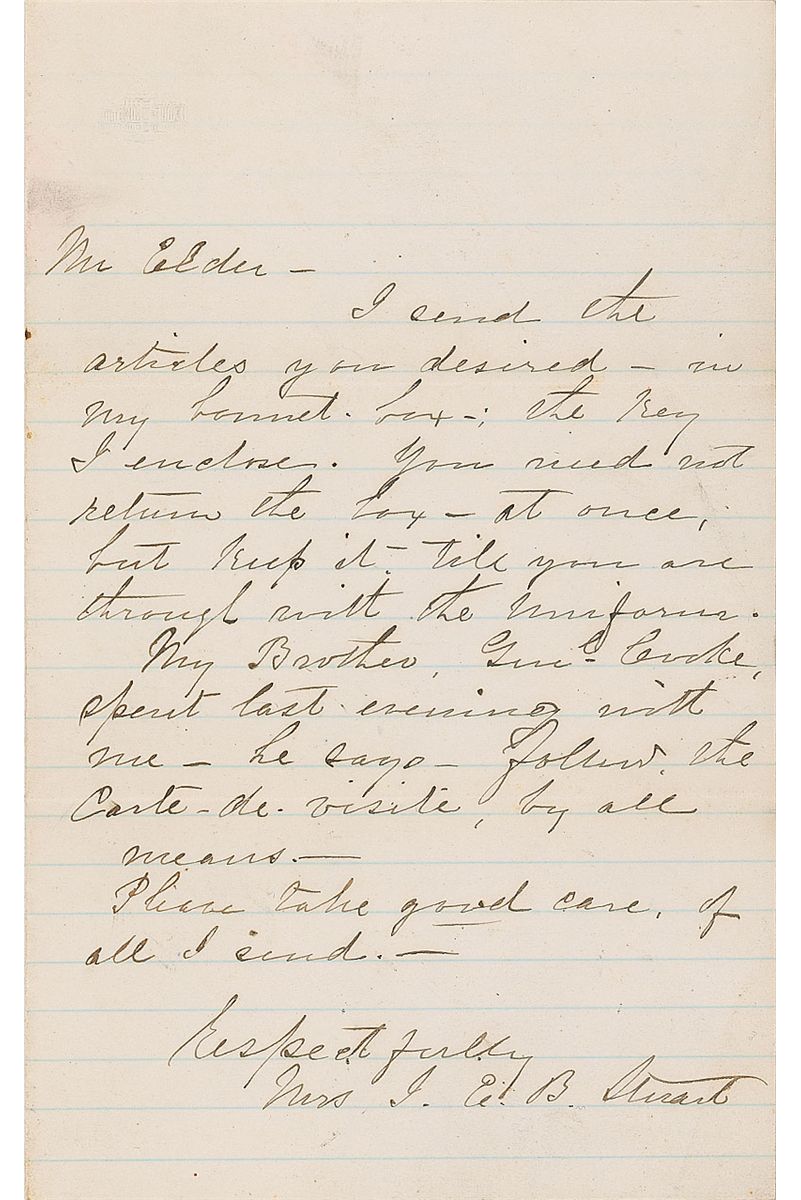 Mr Elder —
I send the
articles you desired — in
my bonnet-box —; the key
I enclose. You need not
return the box — at once,
but keep it till you are
through with the uniform.
My Brother, Genl Cooke,
spent last evening with
me — he says — follow, the
Carte-de-visite, by all
means. —
Please take good care, of
all I send. —
Respectfully
Mrs J. E. B. Stuart